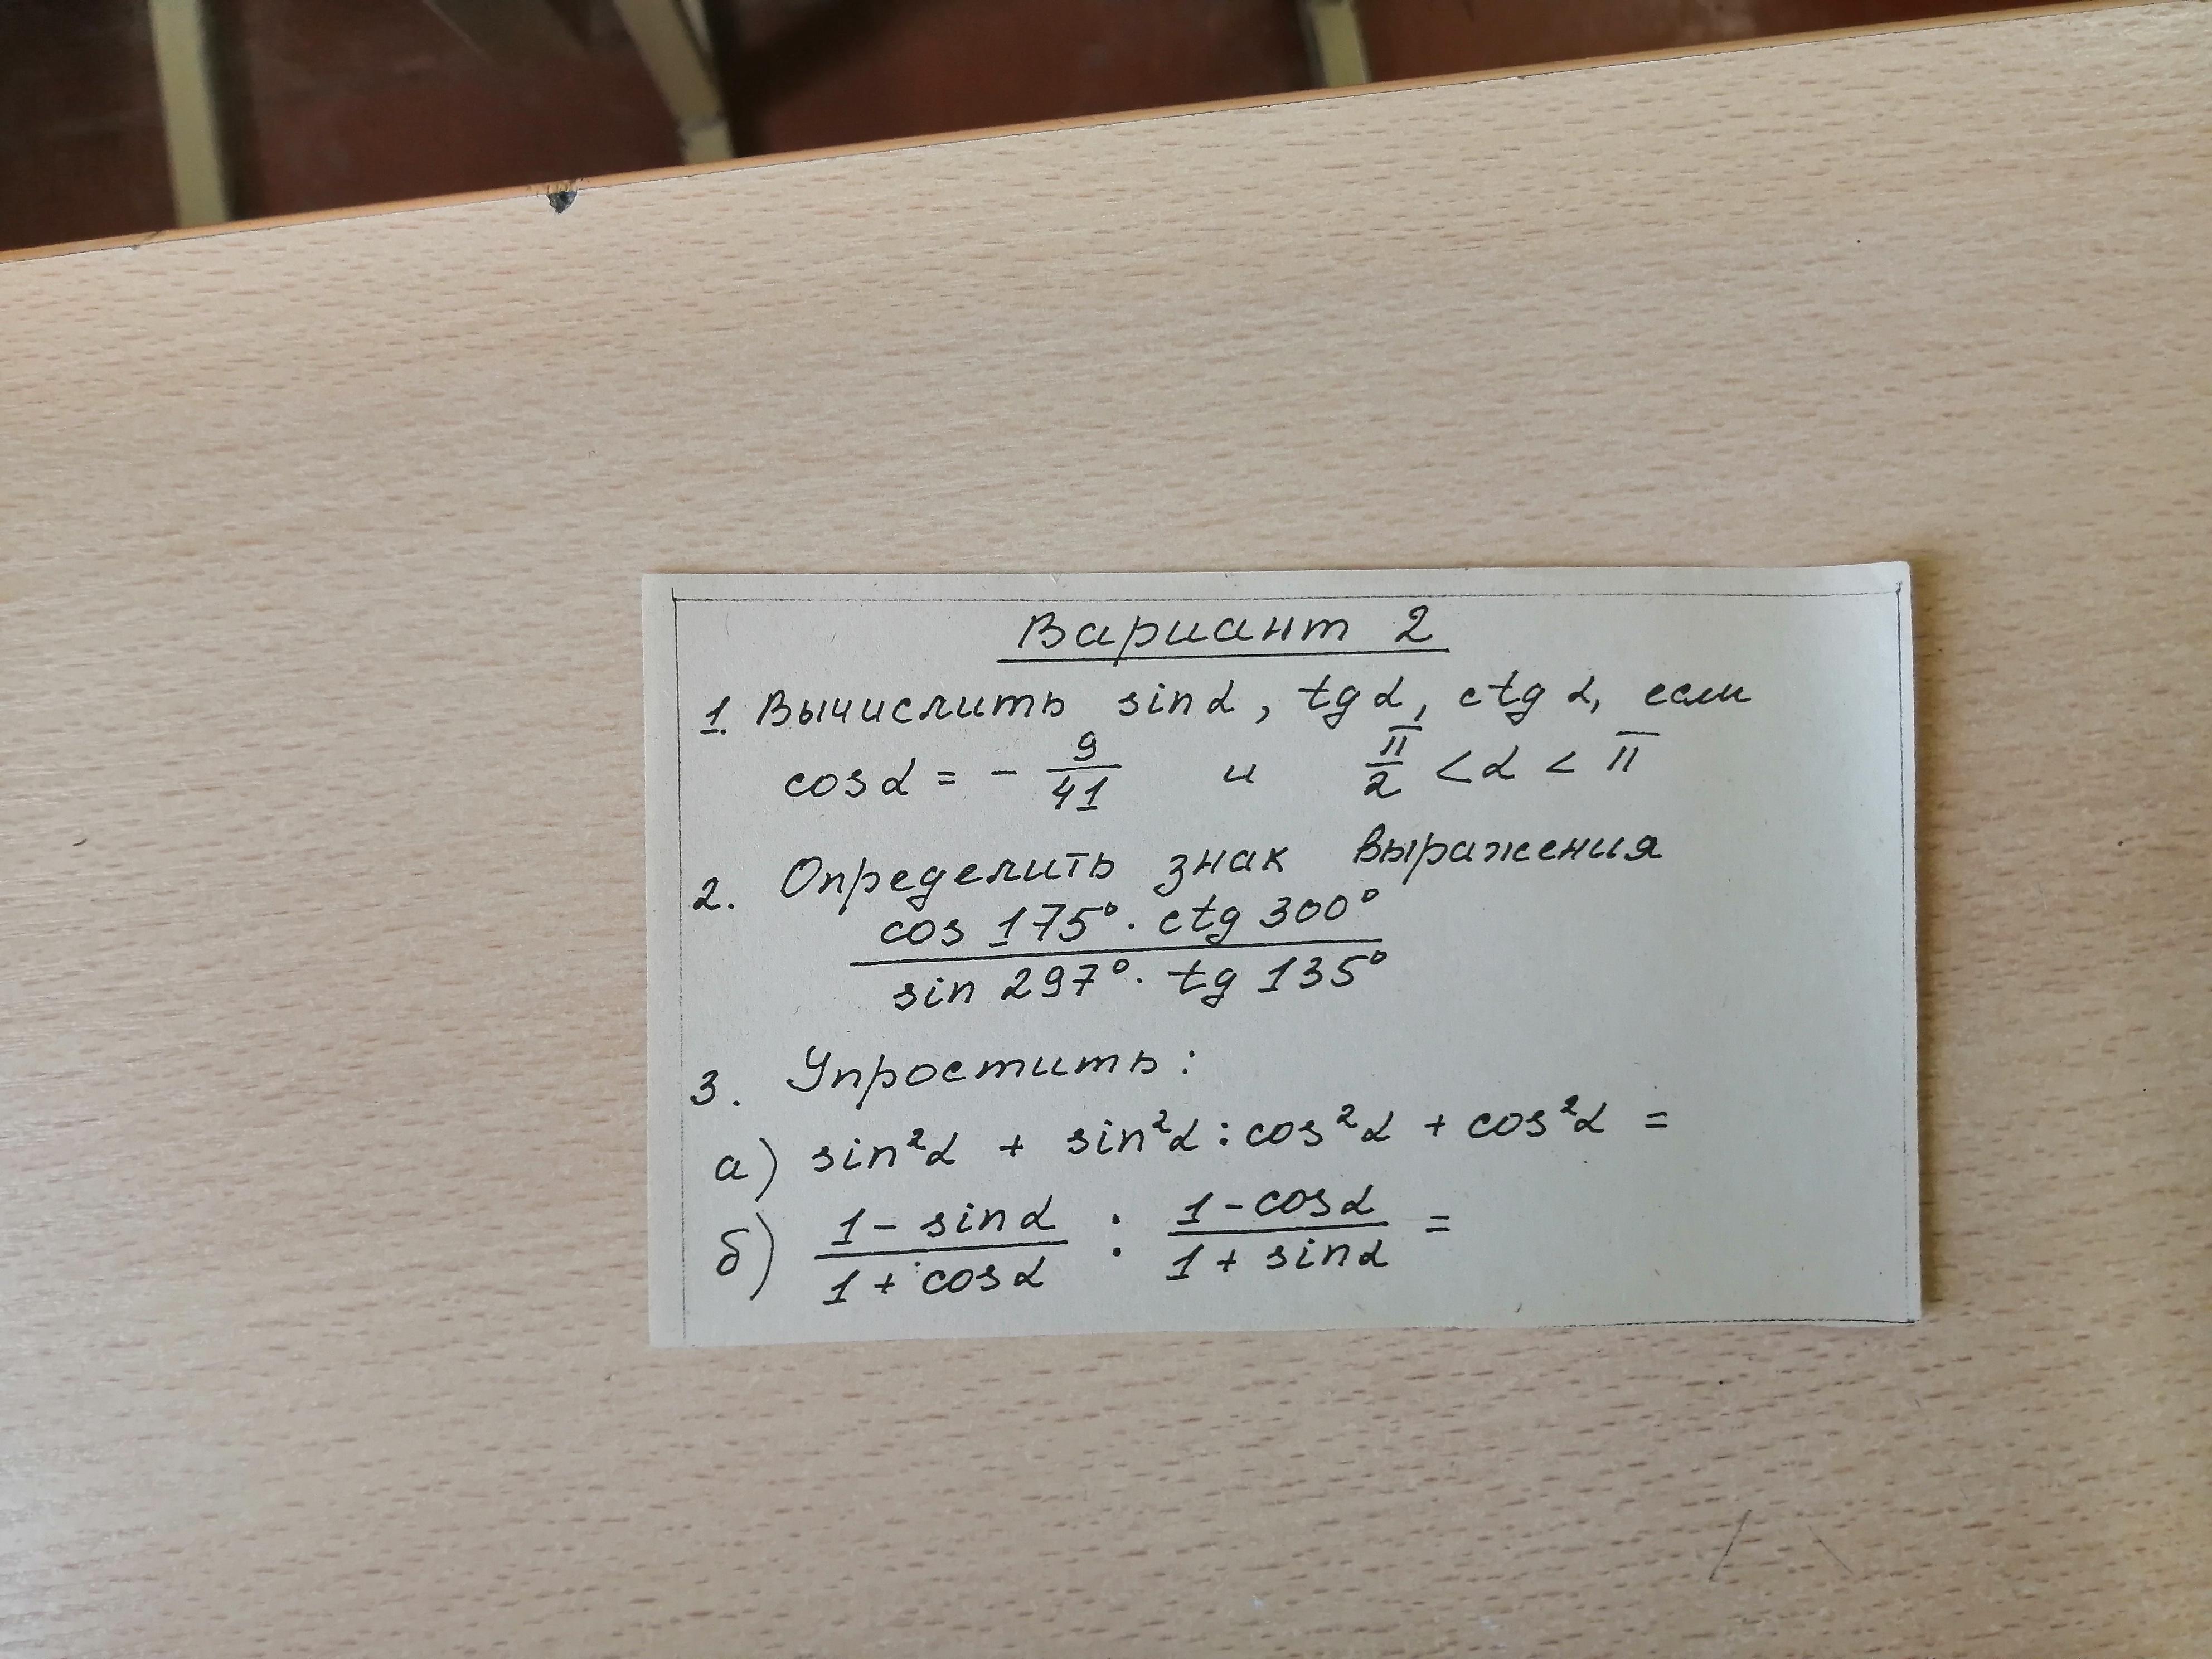 Вариант 2
1. Вычислить sinα, tgα, ctgα, если
cosα = - 9/41 и π/2 < α < π
2. Определить знак выражения
cos 175° · ctg 300°
sin 297° · tg 135°
3. Упростить:
а) sin²α + sin²α : cos²α + cos²α =
б) 1 - sinα / 1 + cosα : 1 - cosα / 1 + sinα =